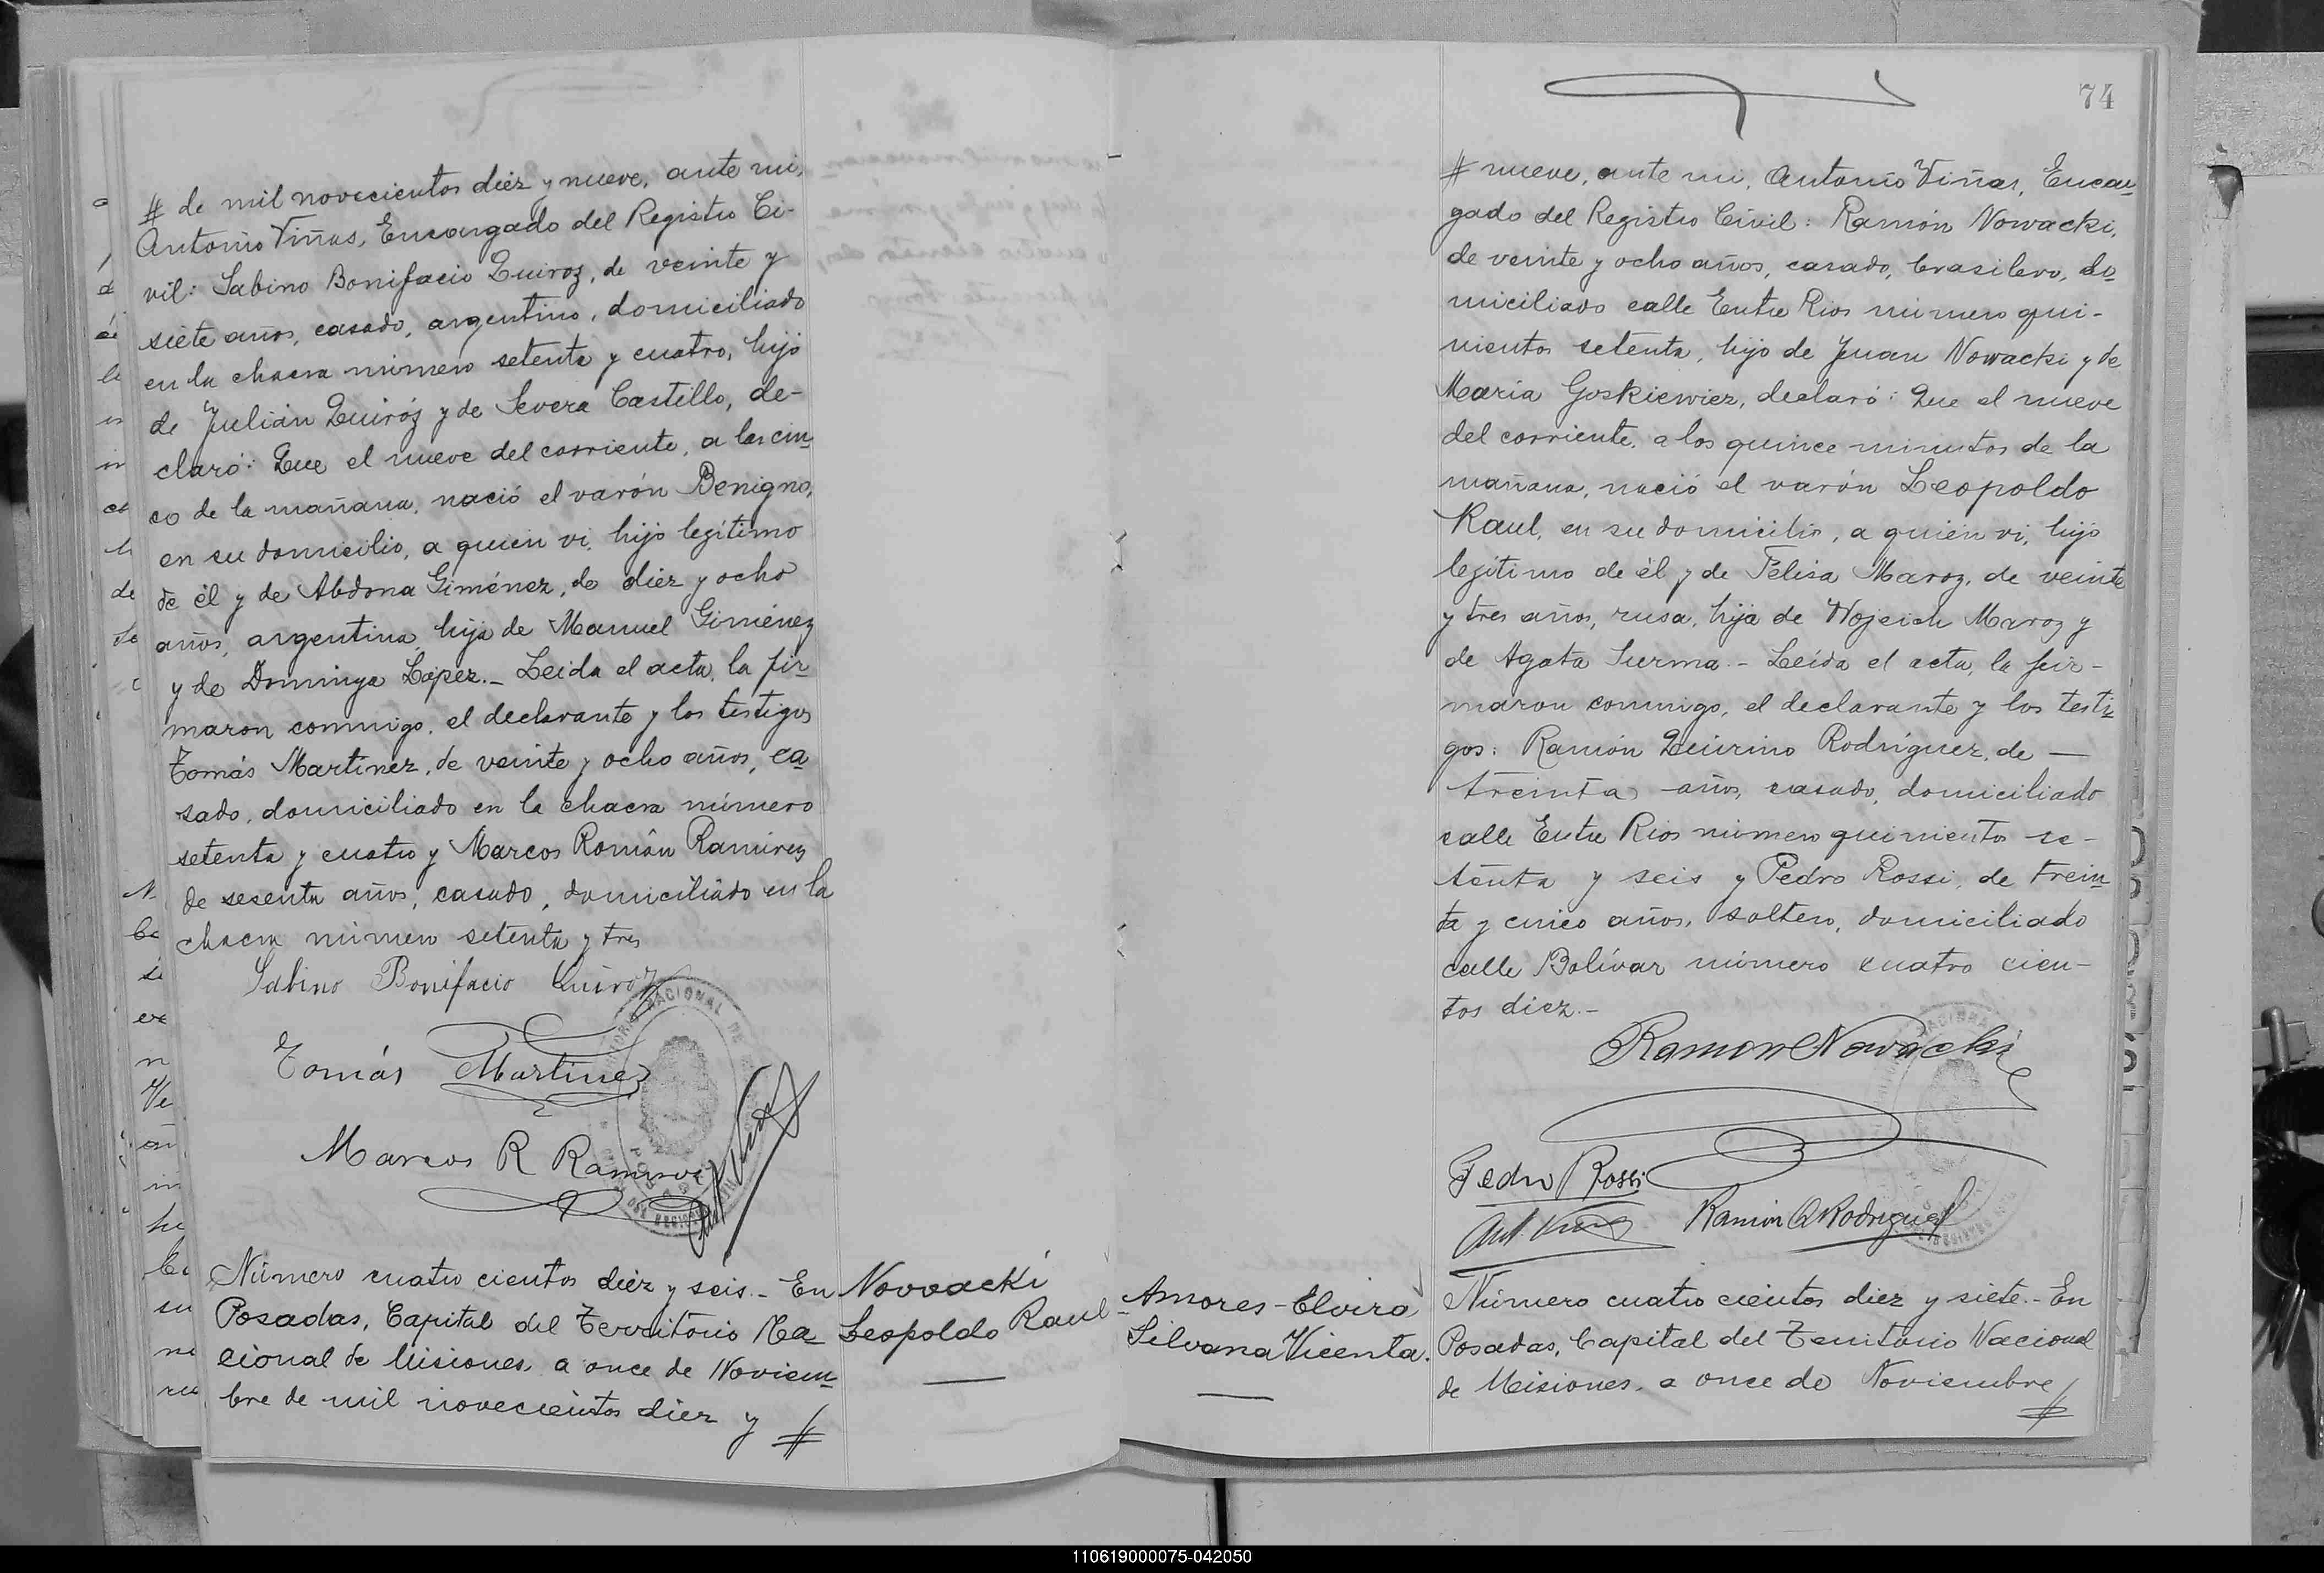 # de mil novecientos diez y nueve, ante mi,
Antonio Viñas, Encargado del Registro Ci-
vil: Sabino Bonifacio Quiroz, de veinte y
siete años, casado, argentino, domiciliado
en la chacra número setenta y cuatro, hijo
de Julián Quiróz y de Severa Castillo, de-
claró: Que el nueve del corriente, a las cin
co de la mañana, nació el varón Benigno,
en su domicilio, a quien vi, hijo legítimo
de él y de Abdona Giménez, de diez y ocho
años, argentina, hija de Manuel Giménez
y de Dominga López.- Leida el acta, la fir
maron conmigo, el declarante y los testigos
Tomás Martínez, de veinte y ocho años, ca
sado, domiciliado en la chacra número
setenta y cuatro y Marcos Román Ramirez
de sesenta años, casado, domiciliado en la
chacra número setenta y tres
Sabino Bonifacio Quiroz
Tomás Martinez
Marcos R Ramirez
Número cuatro cientos diez y seis.- En
Posadas, Capital del Territorio Na
cional de Misiones, a once de Noviem
bre de mil novecientos diez y #
Novvacki
Leopoldo Raul
74
# nueve, ante mi, Antonio Viñas, Encar
gado del Registro Civil: Ramón Nowacki,
de veinte y ocho años, casado, brasilero, do
miciliado calle Entre Rios número qui-
nientos setenta, hijo de Juan Nowacki y de
María Goskiewiez, declaró: Que el nueve
del corriente, a los quince minutos de la
mañana, nació el varón Leopoldo
Raul, en su domicilio, a quién vi, hijo
legítimo de él y de Felisa Maroz, de veinte
y tres años, rusa, hija de Wojeich Maroz y
de Agata Surma.- Leída el acta, la fir-
maron conmigo, el declarante y los testi
gos: Ramón Quirino Rodríguez, de —
treinta años, casado, domiciliado
calle Entre Rios número quinientos se-
tenta y seis y Pedro Rossi, de trein
ta y cinco años, soltero, domiciliado
calle Bolívar número cuatro cien-
tos diez.-
Ramon Nowacki
Pedro Rossi
Ant. Viñas Ramón Q Rodriguez
Amores - Elvira
Silvana Vicenta.
Número cuatro cientos diez y siete.- En
Posadas, Capital del Territorio Nacional
de Misiones, a once de Noviembre #
110619000075-042050